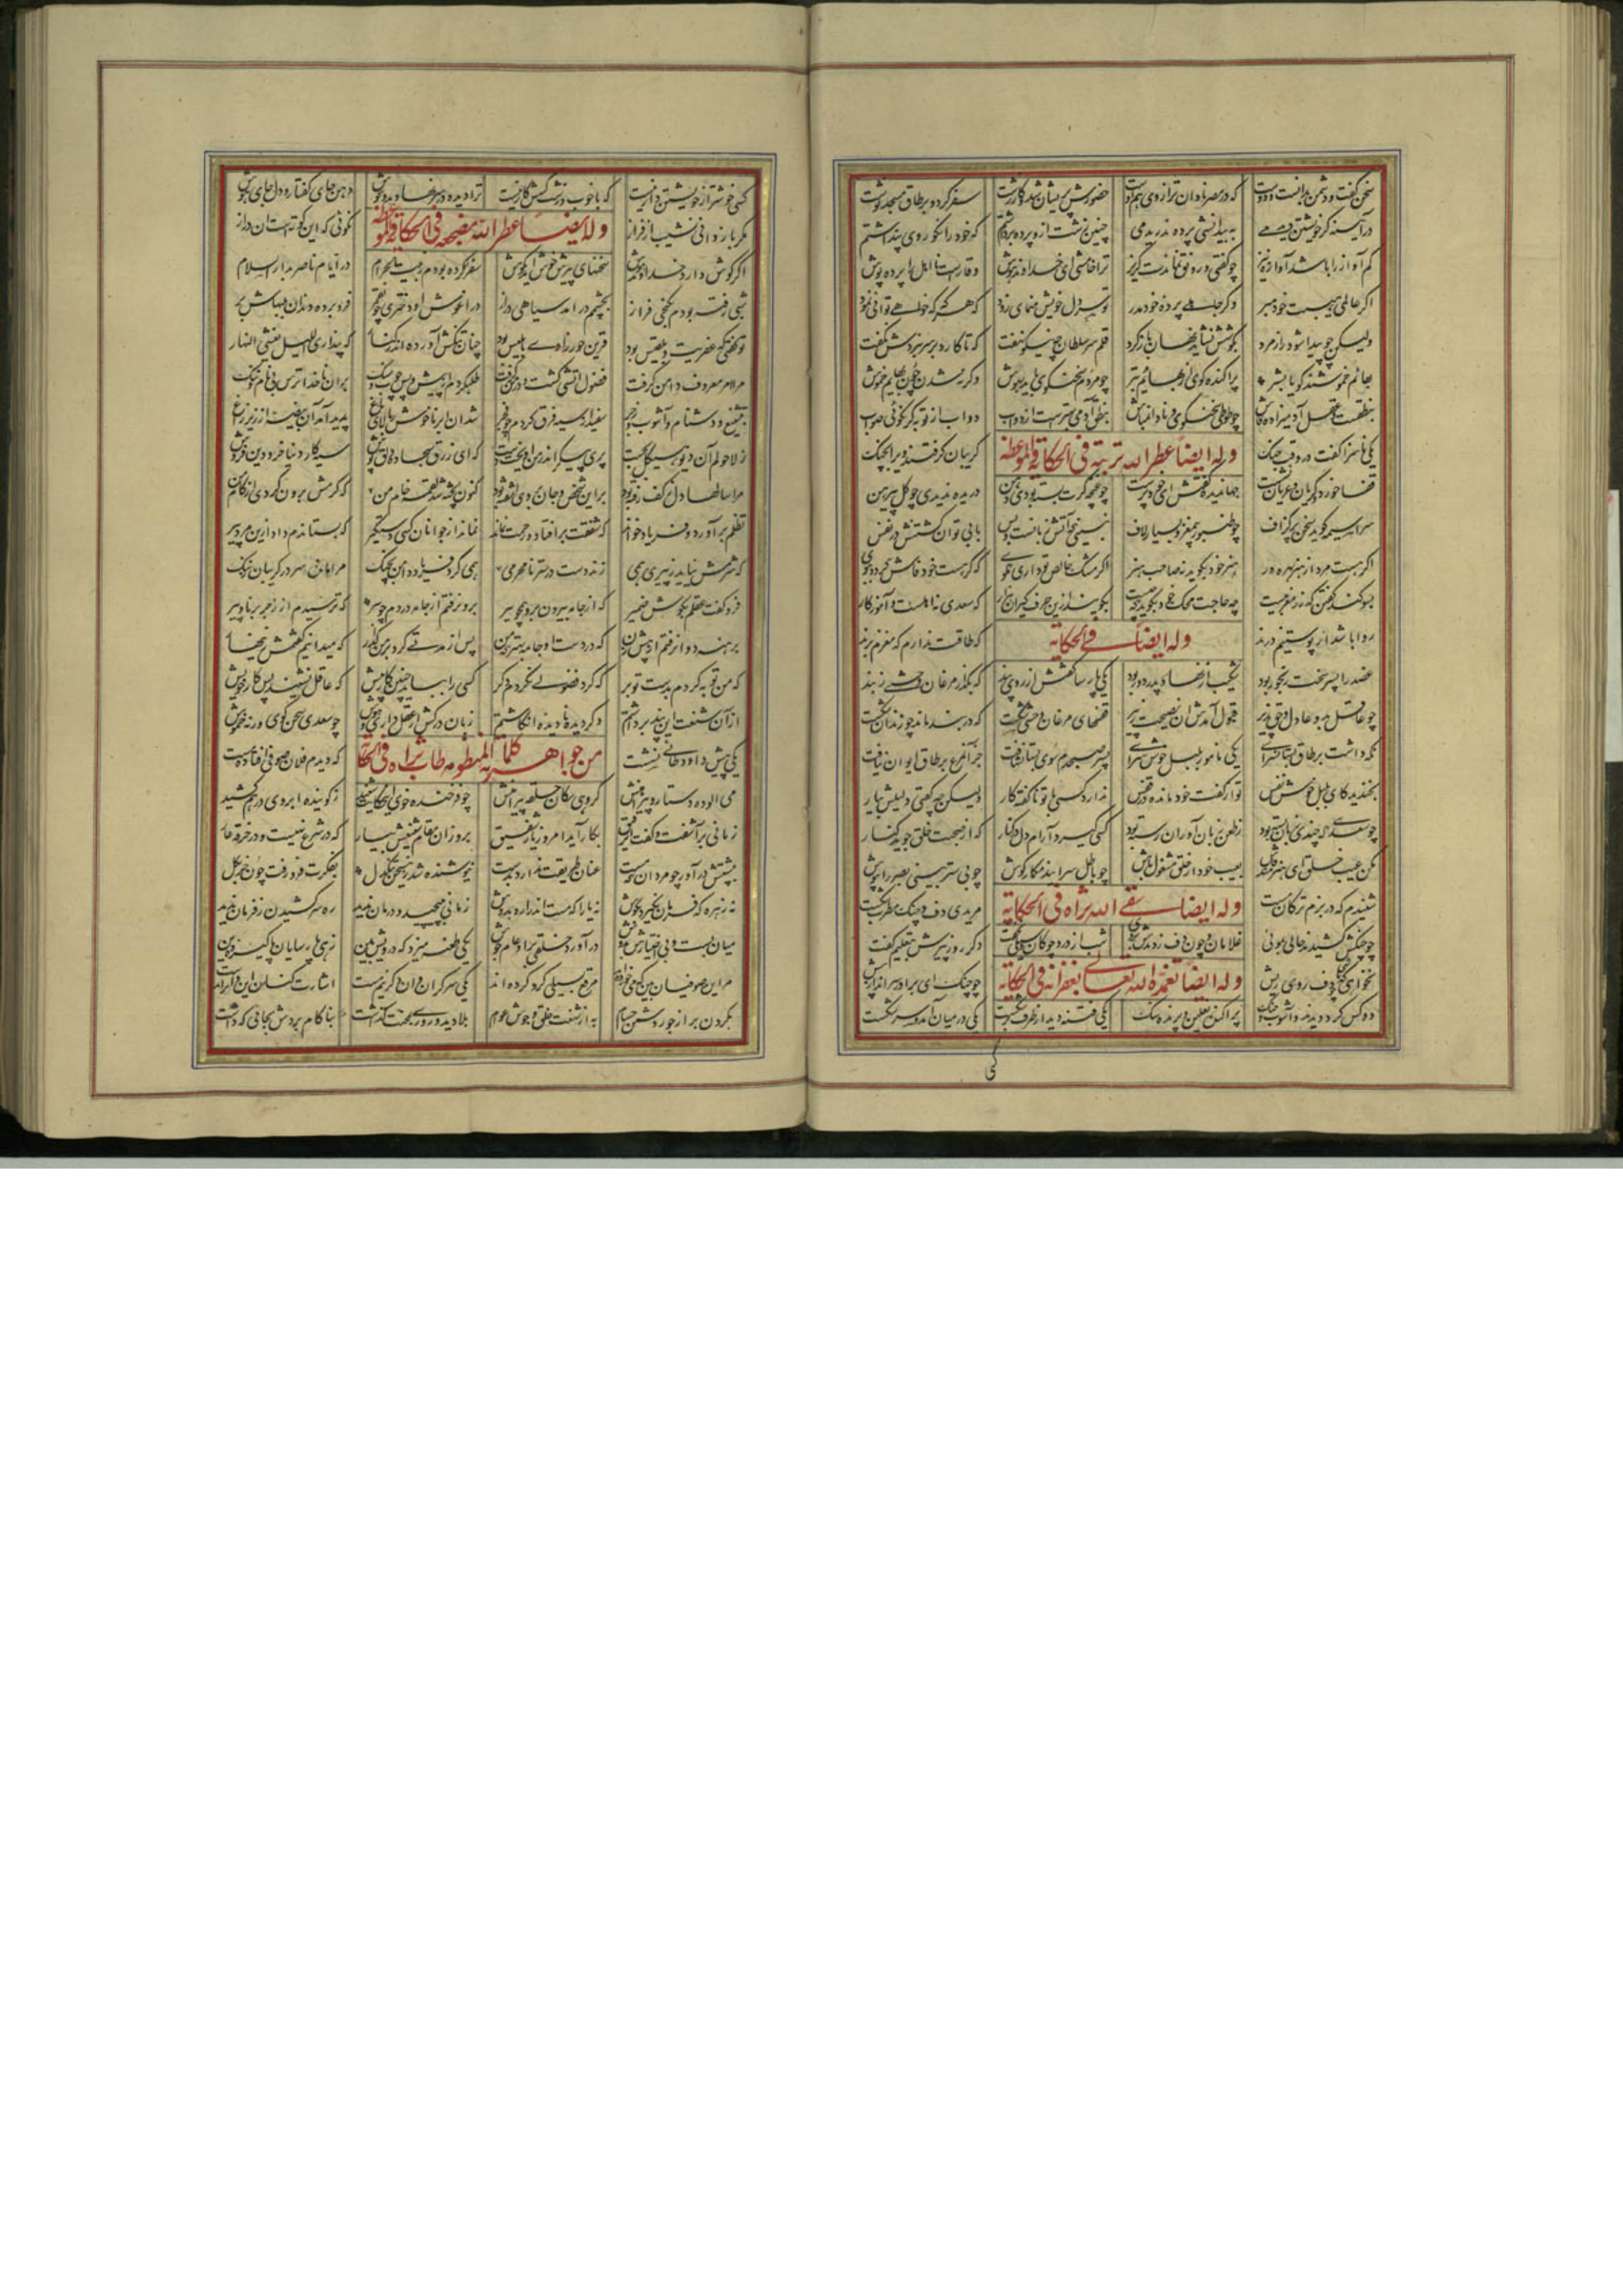 سخن گفت و دشمن بدانست و دوست که در مصر نادان تر از وی هم اوست حضورش پریشان شد و کار زشت سفر کرد و بر طاق مسجد نوشت
در آیینه گر خویشتن دیدمی به بیدانشی پرده ندریدمی چنین زشت از و پرده برداشتم که خود را نکو روی پنداشتم
کم آواز را باشد آوازه تیز چو گفتی و رونق نماندت گریز ترا خامشی ای خداوند هوش وقارست نا اهل را پرده پوش
اگر عالمی هیبت خود مبر و گر جاهلی پرده خود مدر تو سر دل خویش منمای زود که هر گه که خواهی توانی نمود
ولیکن چو پیدا شود راز مرد بکوشش نشاید نهان باز کرد قلم سر سلطان چه نیکو نهفت که تا کارد بر سر نبردش نگفت
بهائم خموشند و گویا بشر پراکنده گوی از بهائم بتر چو مردم سخنگوی باید بهوش و گر نه شدن چون بهایم خموش
بنطقست و عقل آدمیزاده فاش چو طوطی سخنگوی و نادان مباش بنطق آدمی بهترست از دواب دواب از تو به گر نگوئی صواب
وله ایضاً عطر الله تربته فی الحکایة و الموعظه
یکی ناسزا گفت در وقت جنگ گریبان گرفتند ویرا بچنگ
قفا خورده گریان و عریان نشست جهاندیده گفتش ای خودپرست چو غنچه گرت بسته بودی دهن دریده ندیدی چو گل پیرهن
سراسیمه گوید سخن پر گزاف چو طنبور بیمغز و بسیار لاف نبینی که آتش زبانست و بس بآبی توان کشتنش در نفس
اگر هست مرد از هنر بهره ور هنر خود بگوید نه صاحب هنر اگر مشک خالص تو داری مگوی که گر هست خود فاش گردد ببوی
بسوگند گفتن که زر مغربیست چه حاجت محک خود بگوید که چیست بگویند ازین حرف گیران هزار که سعدی نه اهلست و آموزگار
روا باشد ار پوستینم درند که طاقت ندارم که مغزم برند
وله ایضاً فی الحکایة
عضد را پسر سخت رنجور بود شکیب از نهاد پدر دور بود یکی پارسا گفتش از روی پند که بگذار مرغان وحشی ز بند
چو عاقل بدو عادل و حق پذیر قبول آمدش آن نصیحت ز پیر قفسهای مرغان وحشی شکست که در بند ماند چو زندان شکست
نگه داشت بر طاق بستانسرای یکی نامور بلبل خوش سرای پسر صبحدم سوی بستان شتافت جز آن مرغ بر طاق ایوان نیافت
بخندید کای بلبل خوش نفس تو از گفت خود مانده در قفس ندارد کسی با تو ناگفته کار ولیکن چو گفتی دلیلش بیار
چو سعدی که چندی زبان بسته بود ز طعن زبان آوران رسته بود کسی گیرد آرام دل در کنار که از صحبت خلق جوید کنار
مکن عیب خلق ای هنرمند فاش بعیب خود از خلق مشغول باش چو باطل سرایند مگمار گوش چو بی ستر بینی بصیرت بپوش
وله ایضاً سقی الله ثراه فی الحکایة
شنیدم که در بزم ترکان مست مریدی دف و چنگ مطرب شکست
چو چنگش کشیدند حالی بموی غلامان و چون دف زدندش بروی شب از درد چوگان و سیلی نخفت دگر روز پیرش بتعلیم گفت
وله ایضاً تغمده الله تعالی بغفرانه فی الحکایة
نخواهی که گردی چو دف روی ریش چو چنگ ای برادر سر انداز پیش
دو کس گرد دیدند و آشوب و جنگ پراکنده نعلین و پرنده سنگ یکی فتنه دید از طرف بر شکست یکی در میان آمد و سر شکست
کسی خوشتر از خویشتن دار نیست که با خوب و زشت کسش کار نیست ترا دیده در سر نهادند و گوش دهن جای گفتار و دل جای هوش
وله ایضاً عطر الله مضجعه فی الحکایة و الموعظه
مگر باز دانی نشیب از فراز نگوئی که این کوته است آن دراز
اگر گوش دارد خداوند هوش سخنهای پیرش خوش آید بگوش سفر کرده بودم ز بیت الحرام در ایام ناصر بدار السلام
شبی رفته بودم بکنجی فراز بچشمم در آمد سیاهی دراز در آغوش او دختری چون قمر فرو برده دندان بلبهاش بر
تو گفتی که عفریت بلقیس بود قرین حورزادی بابلیس بود چنان تنگش آورده اندر کنار که پنداری اللیل یغشی النهار
مرا امر معروف دامن گرفت فضول آتشی گشت و در من گرفت طلب کردم از پیش و پس چوب و سنگ بر آن ناخدا ترس بی نام و ننگ
بتشنیع و دشنام و آشوب و زجر سفید از سیه فرق کردم چو فجر شد آن ابر ناخوش ز بالای باغ پدید آمد آن بیضه از زیر زاغ
ز لاحولم آن دیو هیکل بجست پری پیکر اندر من آویخت دست که ای زرق سجاده دلق پوش سیه کار دنیا خر دین فروش
مرا سالها دل ز کف رفته بود برین شخص و جان بر وی آشفته بود کنون پخته شد لقمه خام من که گرمش برون کردی از کام من
تظلم بر آورد و فریاد خواند که شفقت بر افتاد و رحمت نماند نماند از جوانان کسی دستگیر که بستاندم داد ازین مرد پیر
که شرمش نیاید ز پیری همی زدن دست در ستر نامحرمی همی کرد فریاد و دامن بچنگ مرا مانده سر در گریبان ز ننگ
فرو گفت عقلم بگوش ضمیر که از جامه بیرون رو همچو سیر برون رفتم از جامه در دم چو سیر که ترسیدم از زجر برنا و پیر
برهنه دوان رفتم از پیش زن که در دست او جامه بهتر که من پس از مدتی کرد بر من گذر که میدانیم گفتمش زینهار
که من توبه کردم بدست تو بر که گرد فضولی نگردم دگر کسی را نیاید چنین کار پیش که عاقل نشیند پس کار خویش
از آن شنعت این پند برداشتم دگر دیده نادیده انگاشتم زبان درکش ار عقل داری و هوش چو سعدی سخن گوی ورنه خموش
من جواهر کلماته المنظومه طاب ثراه فی الحکایة
یکی پیش داود طائی نشست که دیدم فلان صوفی افتاده مست
می آلوده دستار و پیراهنش گروهی سگان حلقه پیرامنش چو فرخنده خوی این حکایت شنید ز گوینده ابروی درهم کشید
زمانی بر آشفت و گفت ای رفیق بکار آید امروز یار شفیق برو زان مقام شنیعش بیار که در شرع نهیست و در خرقه عار
بپشتش در آور چو مردان که مست عنان طریقت ندارد بدست نیوشنده شد زین سخن تنگدل بفکرت فرو رفت چون خر بگل
نه زهره که فرمان نگیرد بگوش نه یارا که مست اندر آرد بدوش زمانی بپیچید و درمان ندید ره سر کشیدن ز فرمان ندید
میان بست و بی اختیارش بدوش در آورد و خلقی برو عام جوش یکی طعنه میزد که درویش بین زهی پارسایان پاکیزه دین
مر این صوفیان بین که می خورده اند مرقع بسیکی گرو کرده اند یکی سرگران وان دگر نیم مست اشارت کنان این و آن را بدست
بگردن بر از جور دشمن حسام به از شنعت خلق و جوش عوام بلا دید و روزی بمحنت گذاشت بناکام بردش بجائی که داشت